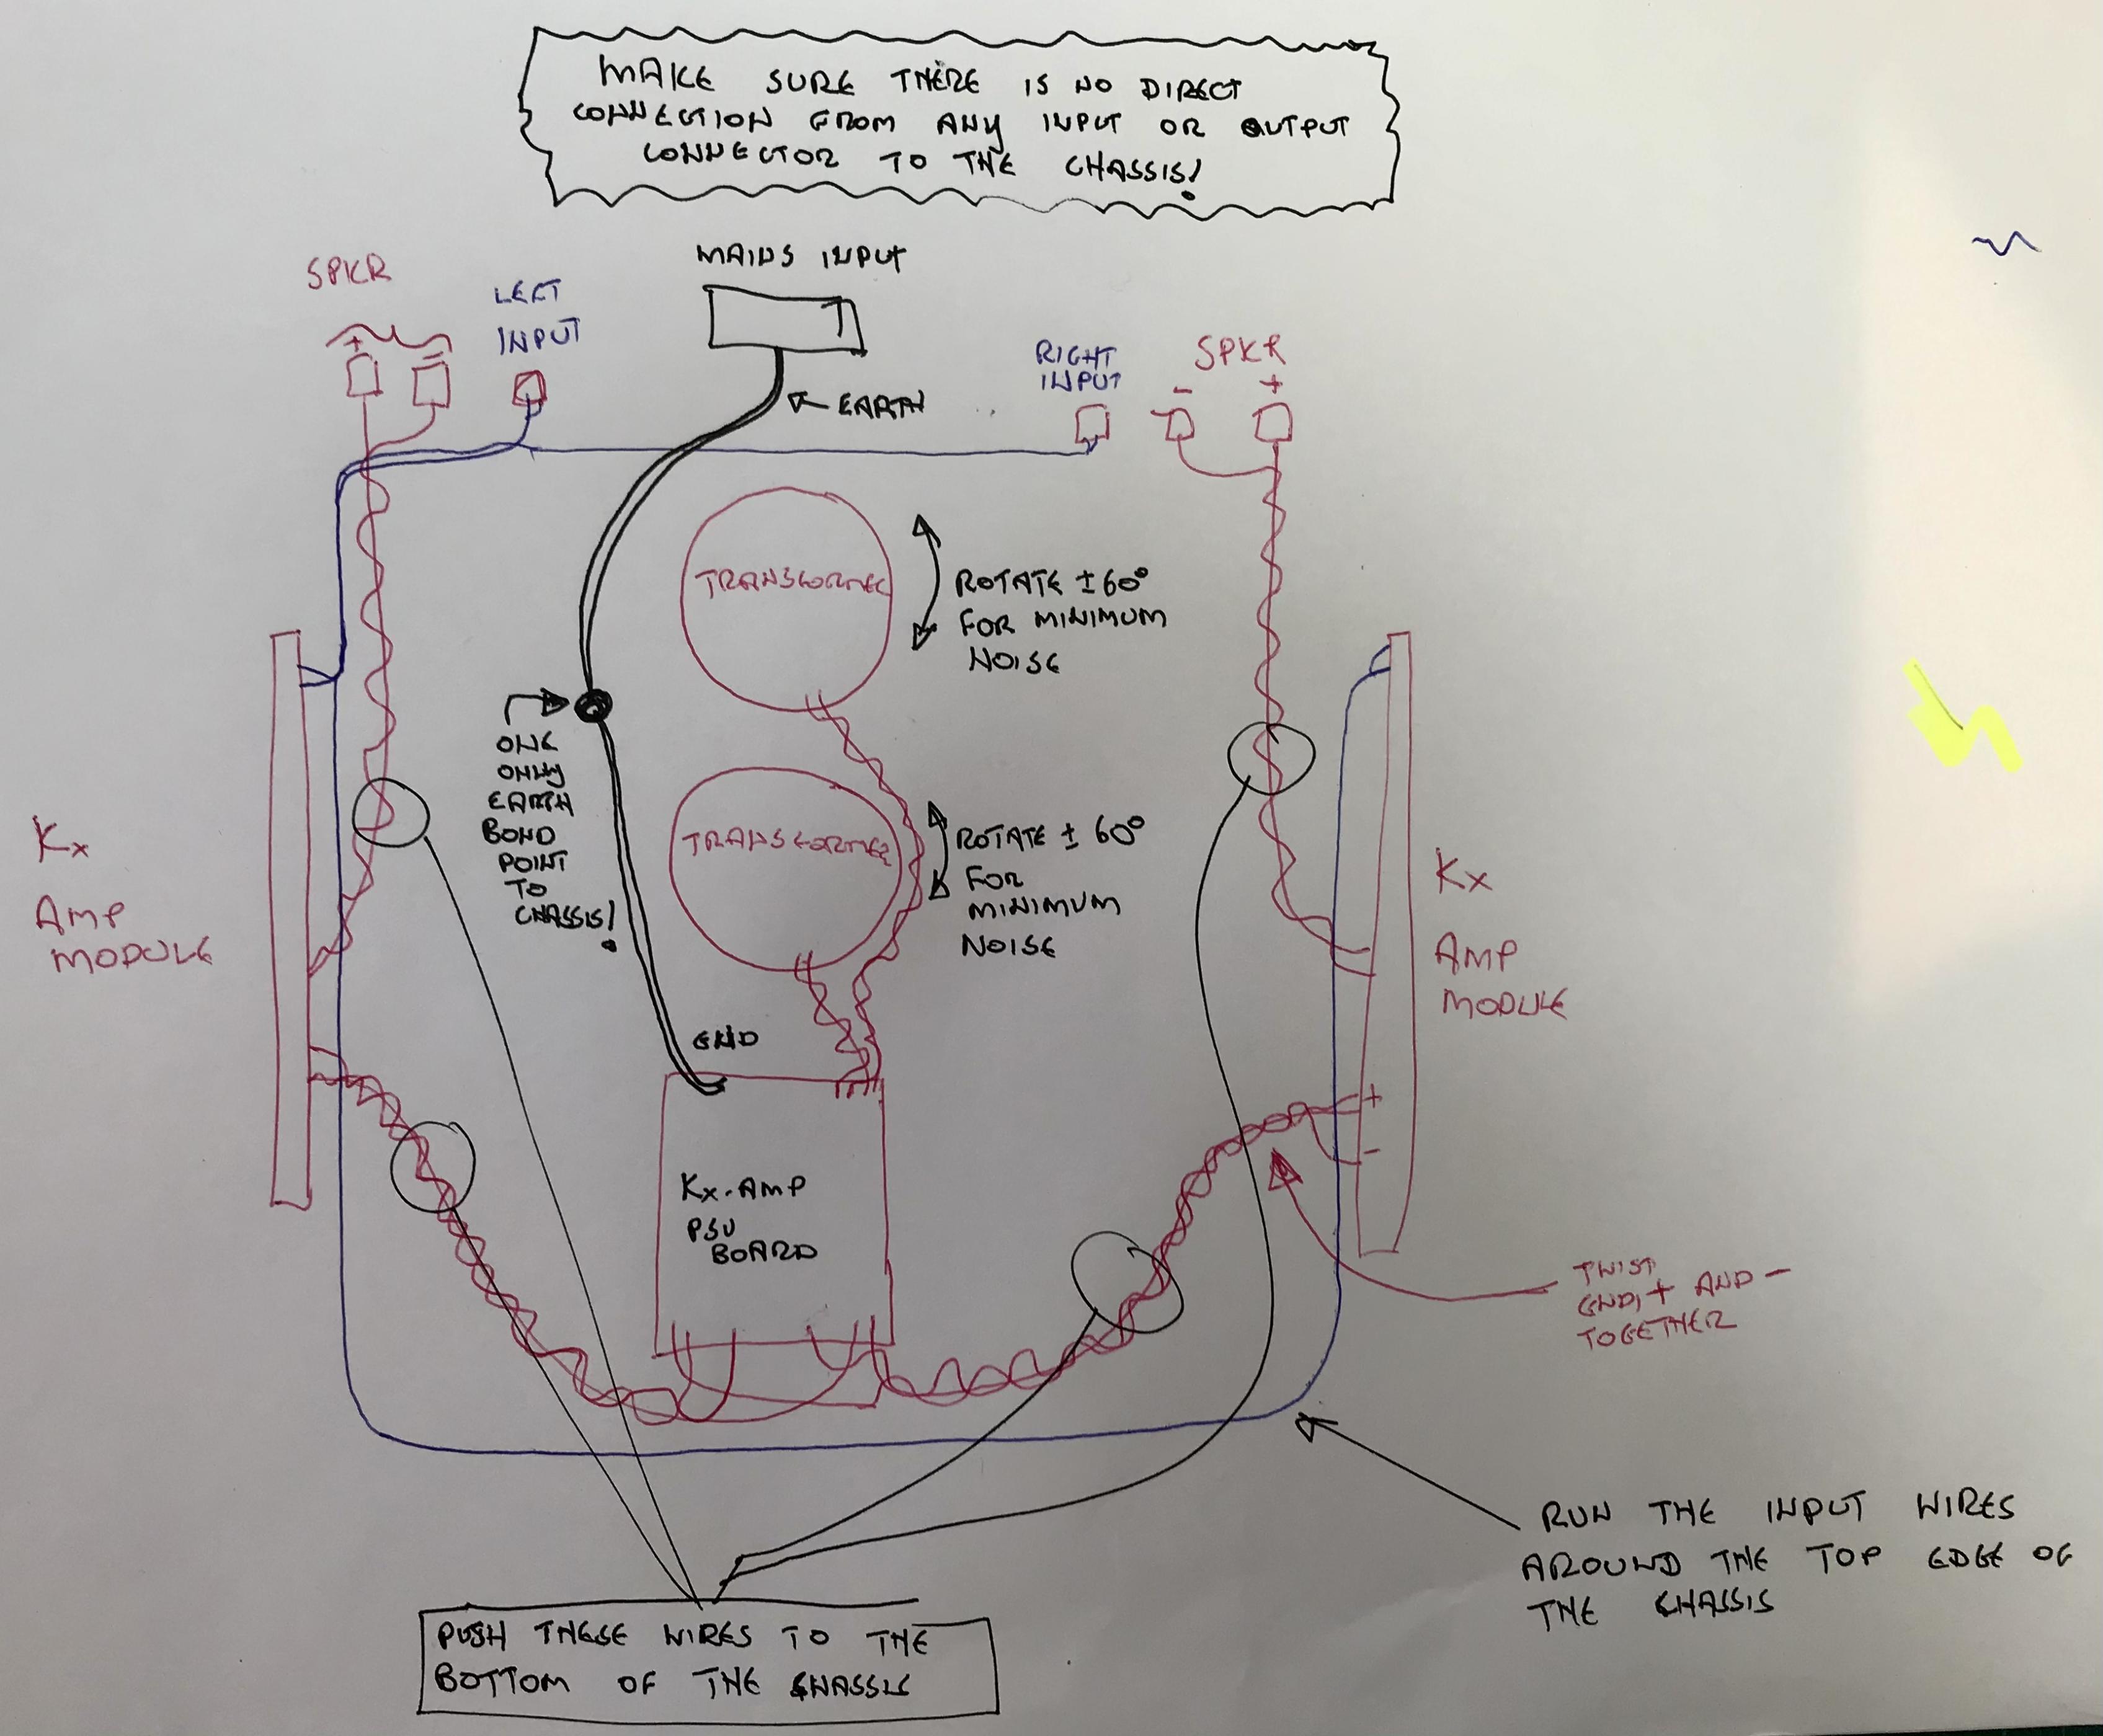 MAKE SURE THERE IS NO DIRECT
CONNECTION FROM ANY INPUT OR OUTPUT
CONNECTOR TO THE CHASSIS!
MAINS INPUT
SPKR
+ -
LEFT
INPUT
EARTH
RIGHT
INPUT
SPKR
- +
TRANSFORMER
ROTATE ±60°
FOR MINIMUM
NOISE
ONE
ONLY
EARTH
BOND
POINT
TO
CHASSIS!
TRANSFORMER
ROTATE ± 60°
FOR
MINIMUM
NOISE
Kx
AMP
MODULE
Kx
AMP
MODULE
GND
+
-
Kx-AMP
PSU
BOARD
TWIST
GND, + AND -
TOGETHER
RUN THE INPUT WIRES
AROUND THE TOP EDGE OF
THE CHASSIS
PUSH THESE WIRES TO THE
BOTTOM OF THE CHASSIS